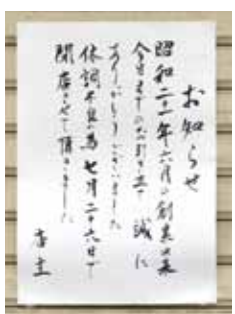 お知らせ
昭和二十一年六月の創業以来
今日までのお引立て誠に
ありがとうございました
体調不良の為七月二十六日で
閉店させて頂きました
店主